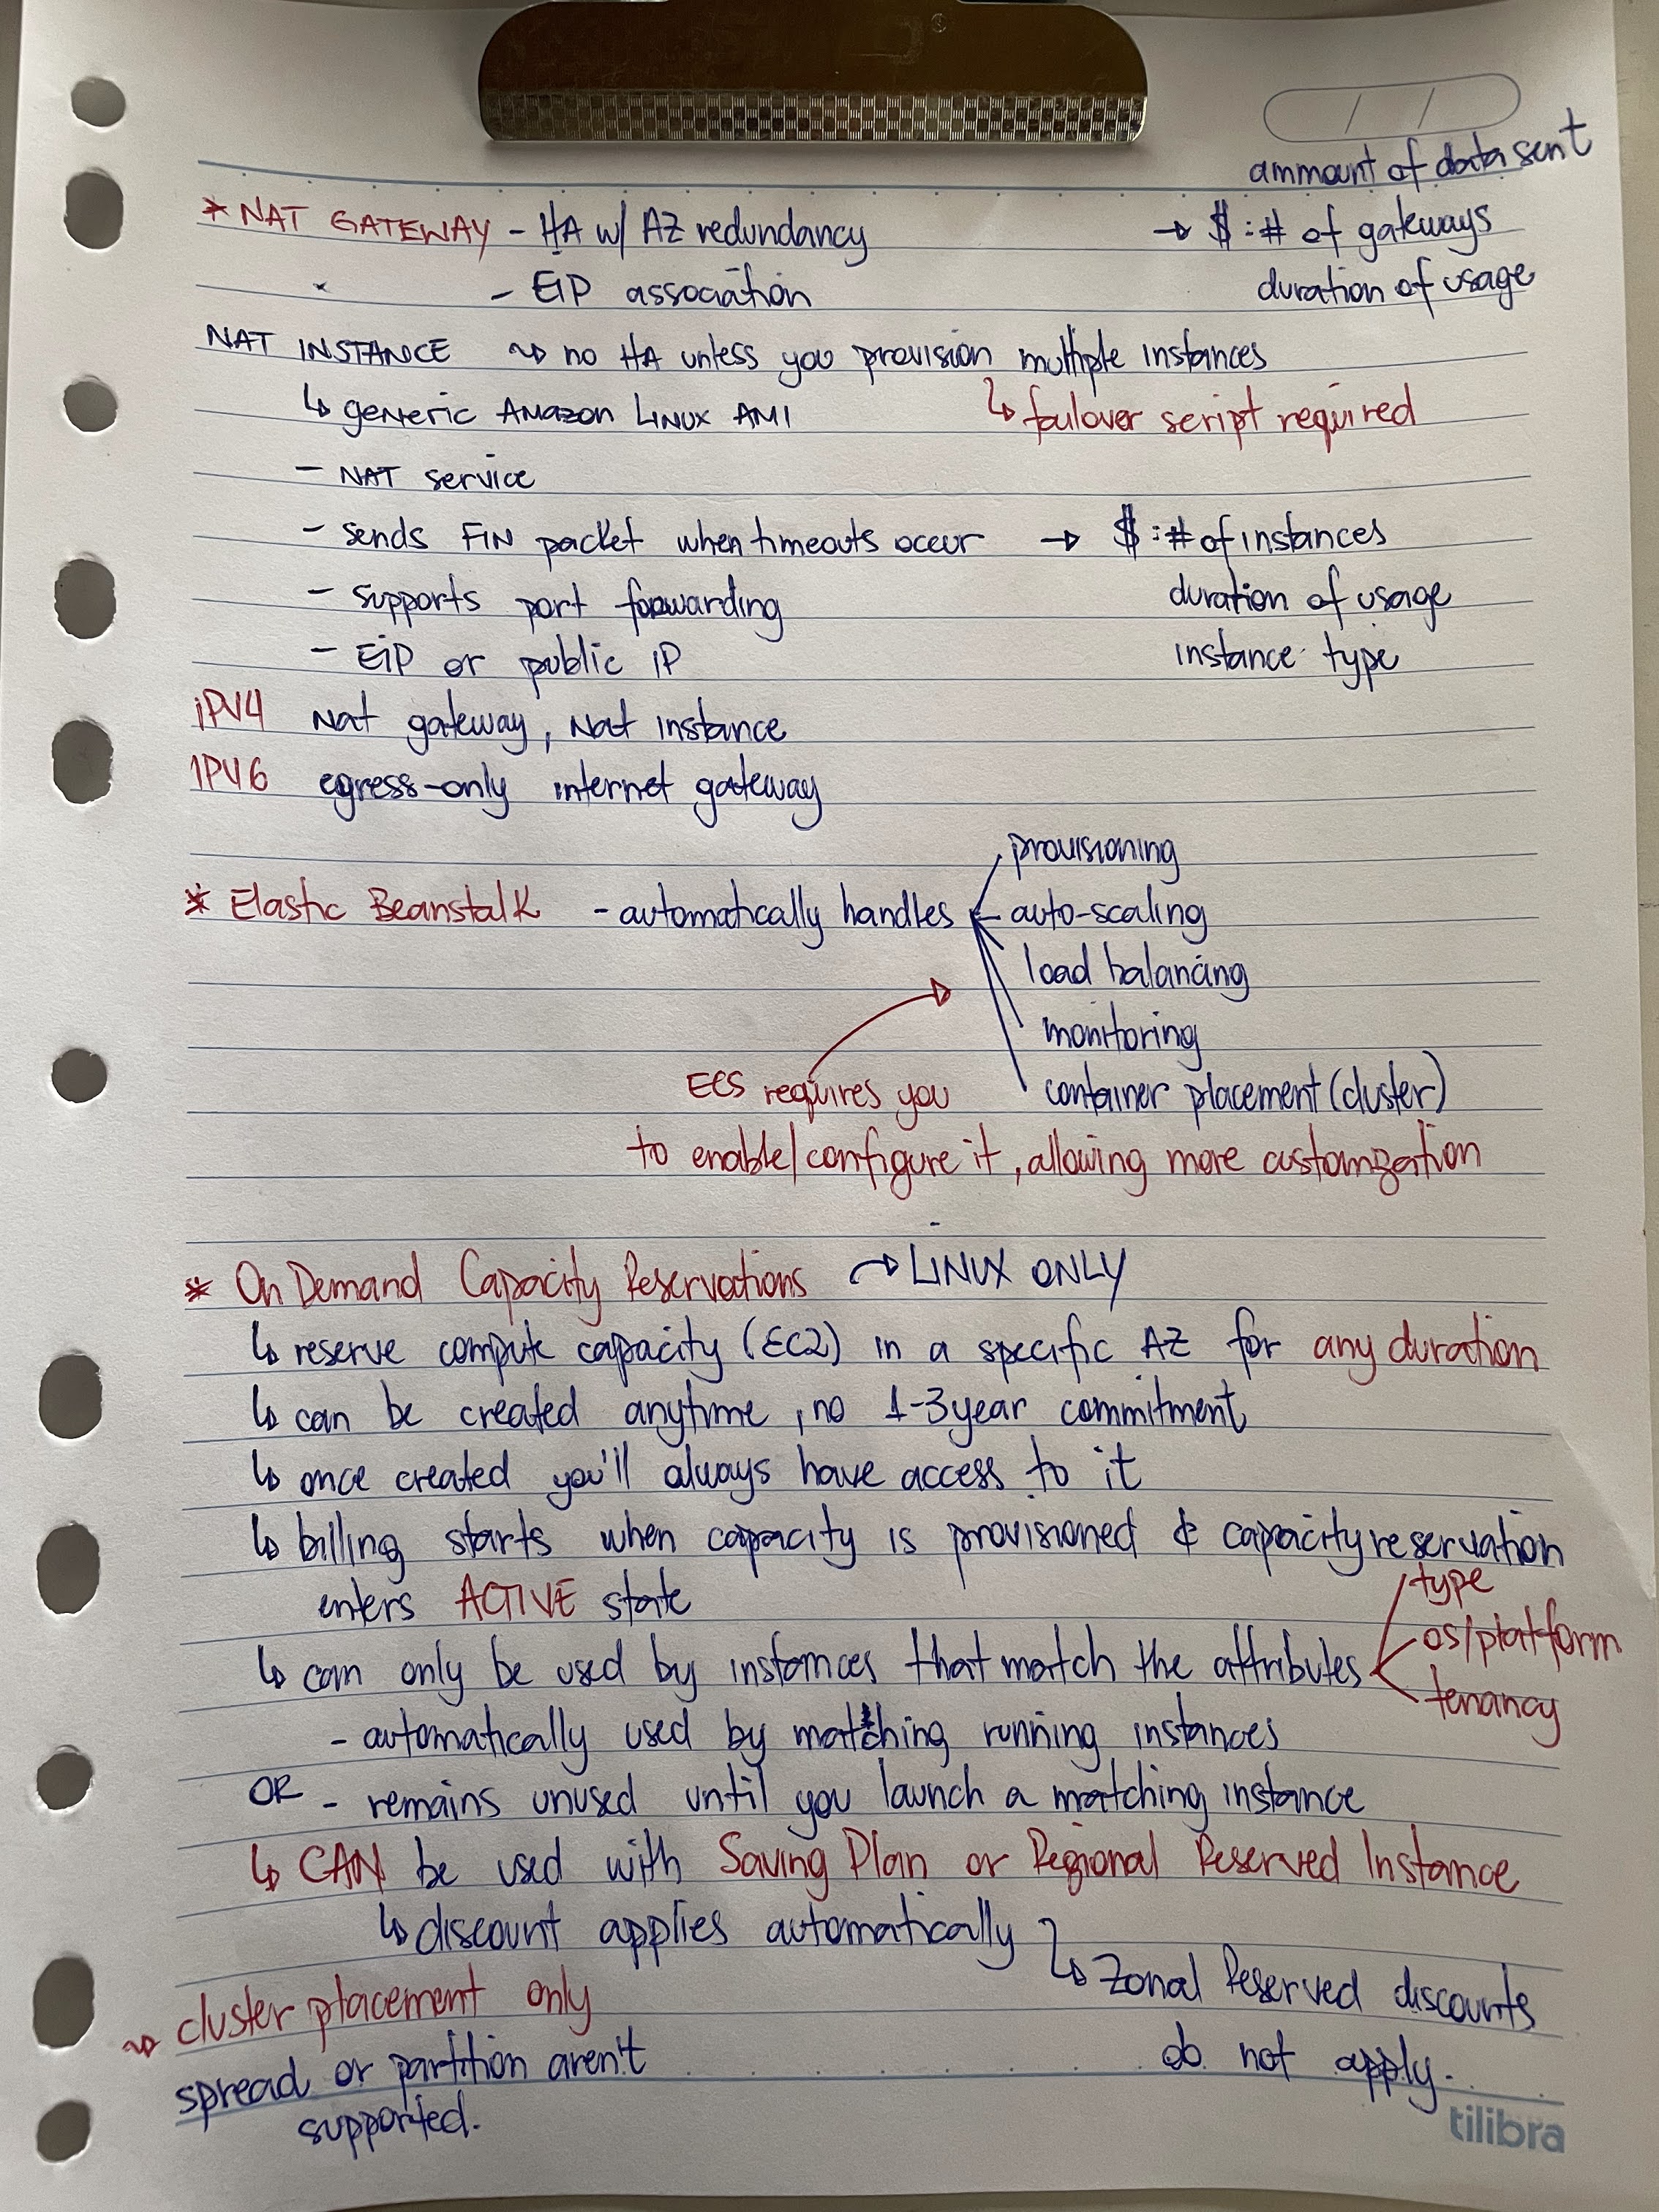 ammount of data sent
* NAT GATEWAY - HA w/ AZ redundancy → $ : # of gateways
- EIP association duration of usage
NAT INSTANCE ~> no HA unless you provision multiple instances
↳ generic Amazon Linux AMI ↳ failover script required
- NAT service
- sends FIN packet when timeouts occur → $ : # of instances
- supports port forwarding duration of usage
- EIP or public IP instance type
IPV4 Nat gateway, Nat instance
IPV6 egress-only internet gateway
provisioning
* Elastic Beanstalk - automatically handles auto-scaling
load balancing
monitoring
ECS requires you container placement (cluster)
to enable/configure it, allowing more customization
* On Demand Capacity Reservations → LINUX ONLY
↳ reserve compute capacity (EC2) in a specific AZ for any duration
↳ can be created anytime, no 1-3 year commitment
↳ once created you'll always have access to it
↳ billing starts when capacity is provisioned & capacity reservation
enters ACTIVE state
type
os/platform
↳ can only be used by instances that match the attributes
tenancy
- automatically used by matching running instances
OR - remains unused until you launch a matching instance
↳ CAN be used with Saving Plan or Regional Reserved Instance
↳ discount applies automatically
↳ Zonal Reserved discounts
do not apply.
~> cluster placement only
spread or partition aren't
supported.
tilibra